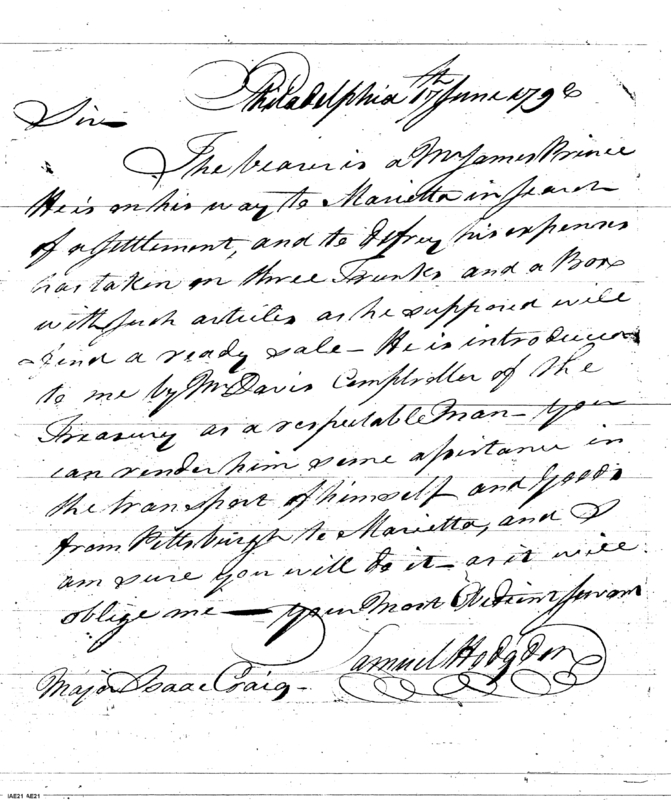 Philadelphia 17th June 179
Sir
The bearer is a Mr James Prince
He is on his way to Marietta in search
of a settlement, and to defrey his expenses
has taken on three Trunks and a Box
with such articles as he supposed will
find a ready sale – He is introduced
to me by Mr Davis Comptroller of the
Treasury as a respectable Man – you
can render him some assistance in
the transport of himself and Goods
from Pittsburgh to Marietta, and I
am sure you will do it – as it will
oblige me — your Most Obedient Servant
Samuel Hodgdon
Major Isaac Craig –
IAE21 AE21